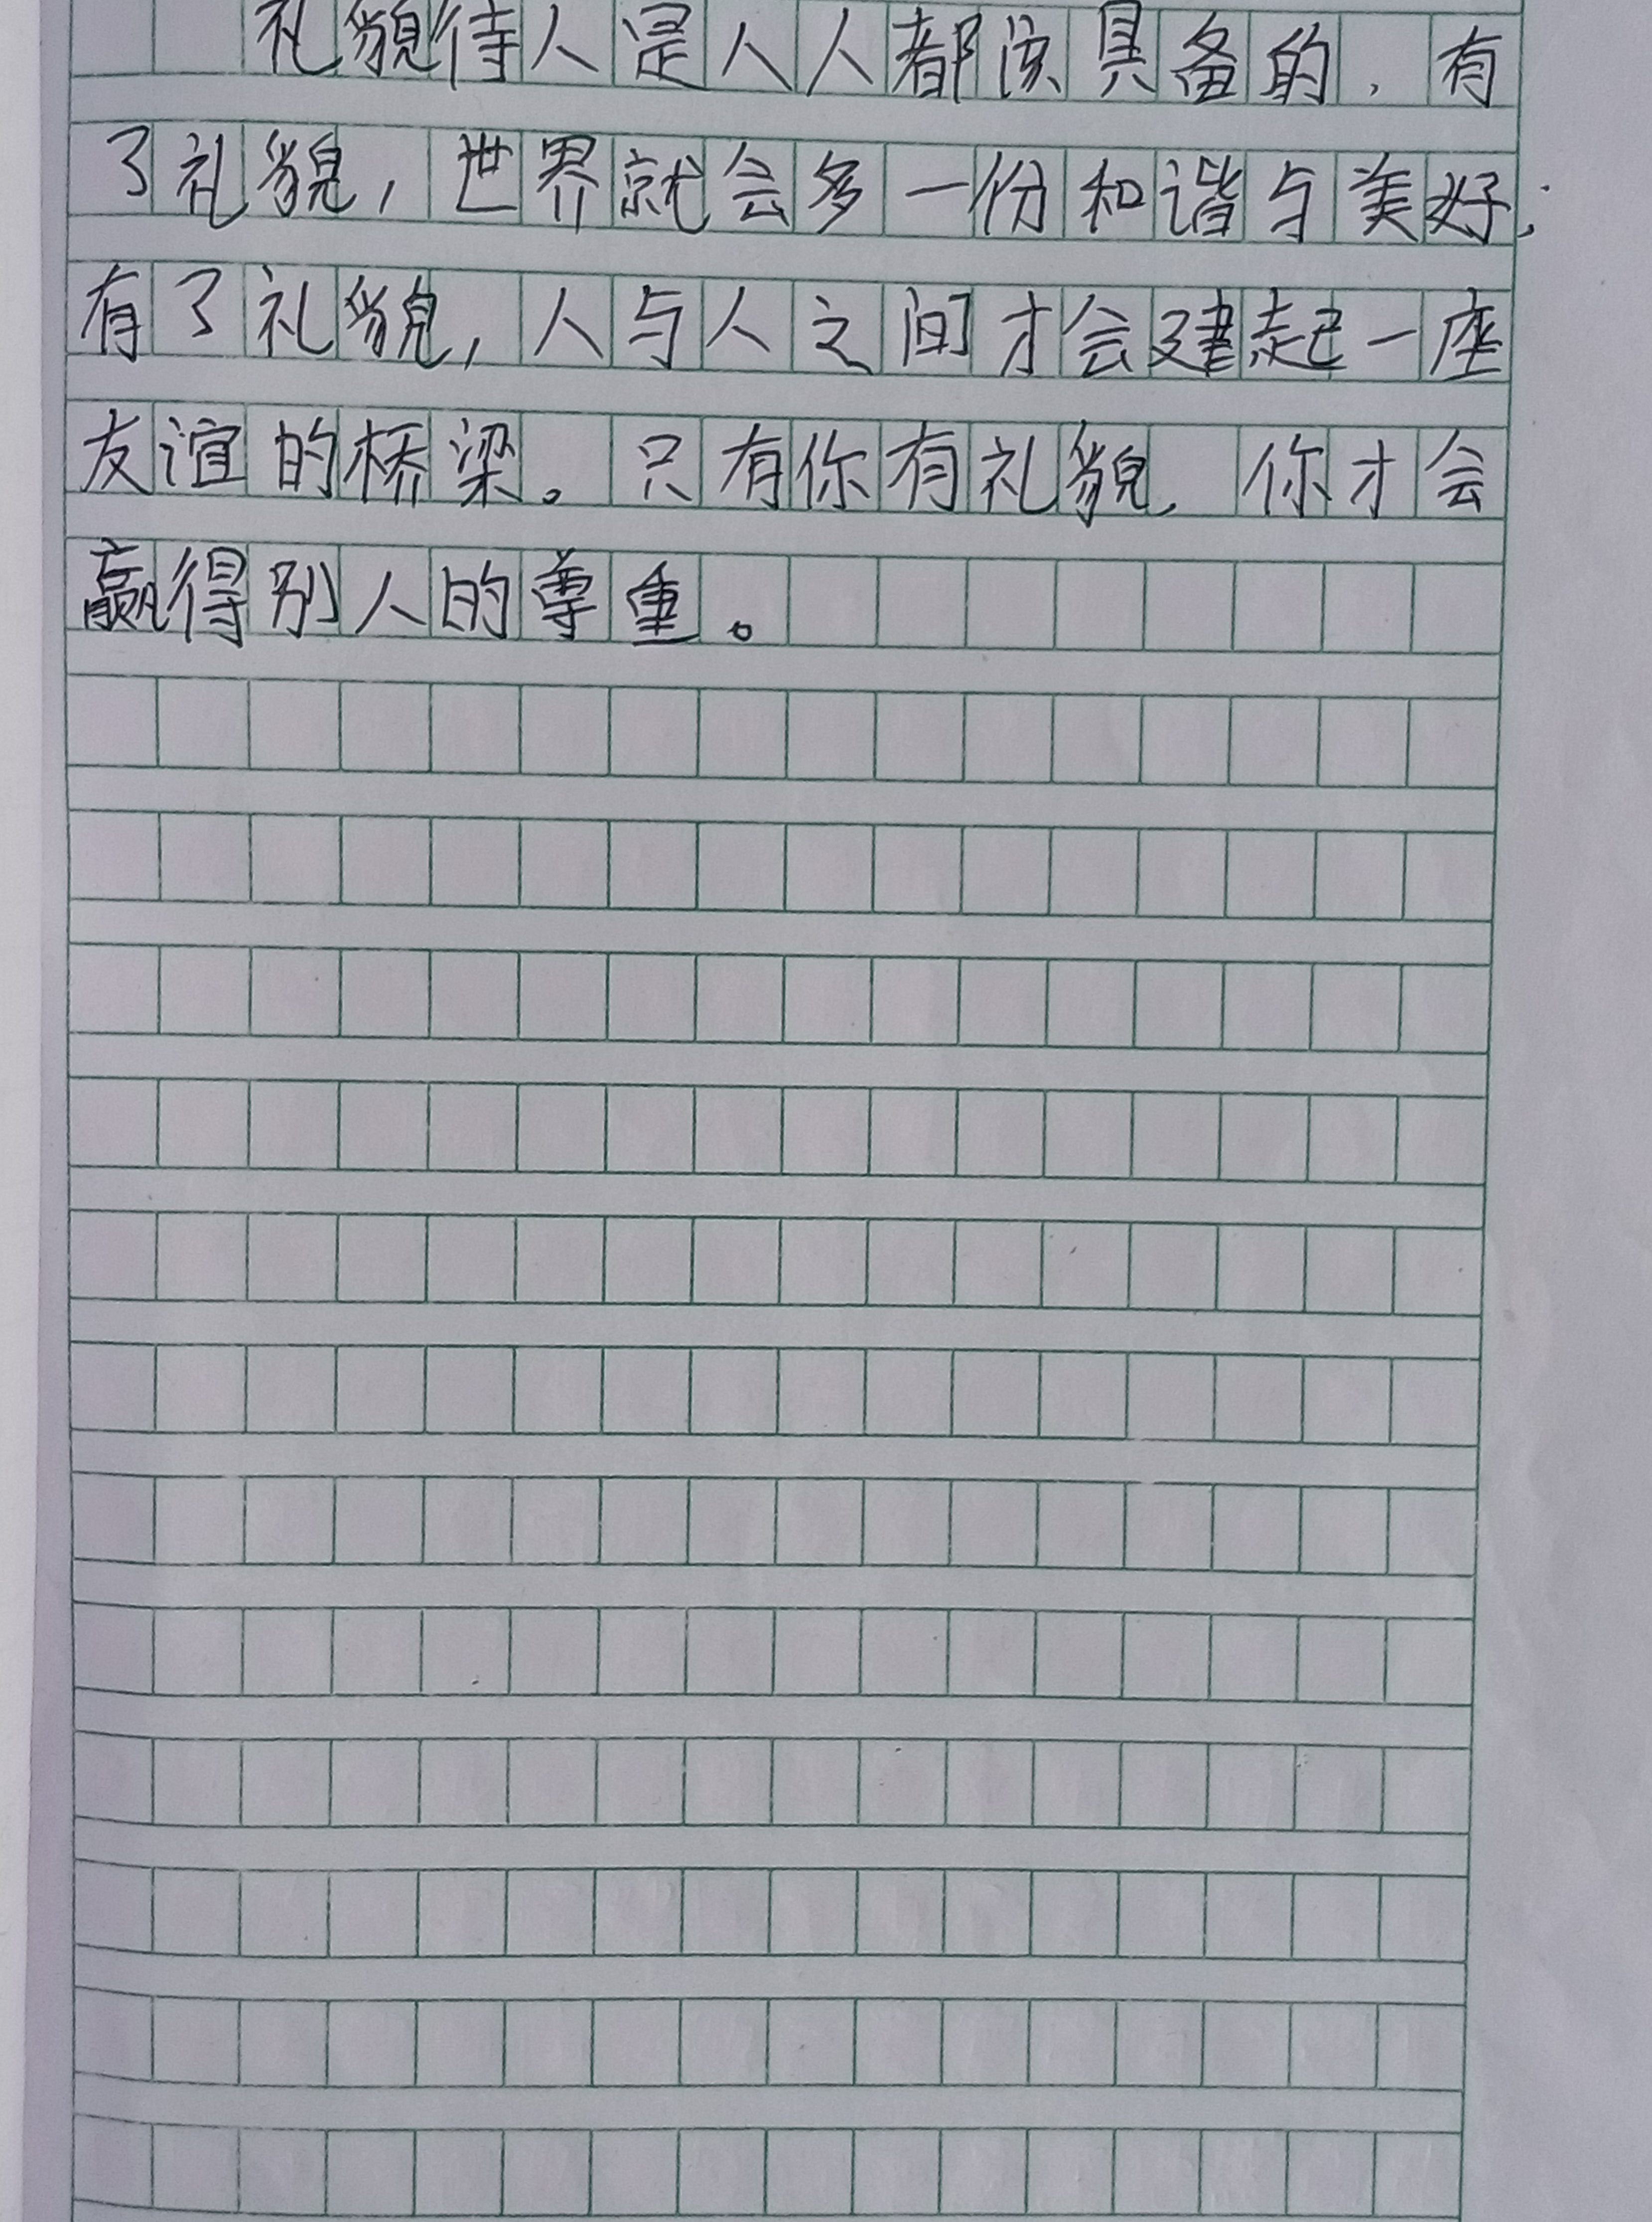 礼貌待人是人人都该具备的，有
了礼貌，世界就会多一份和谐与美好；
有了礼貌，人与人之间才会建起一座
友谊的桥梁。只有你有礼貌，你才会
赢得别人的尊重。